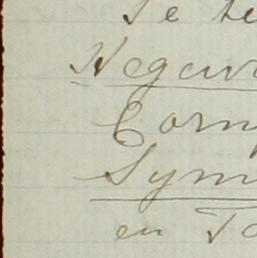 Te te
Negew
Corn
Sym
en To